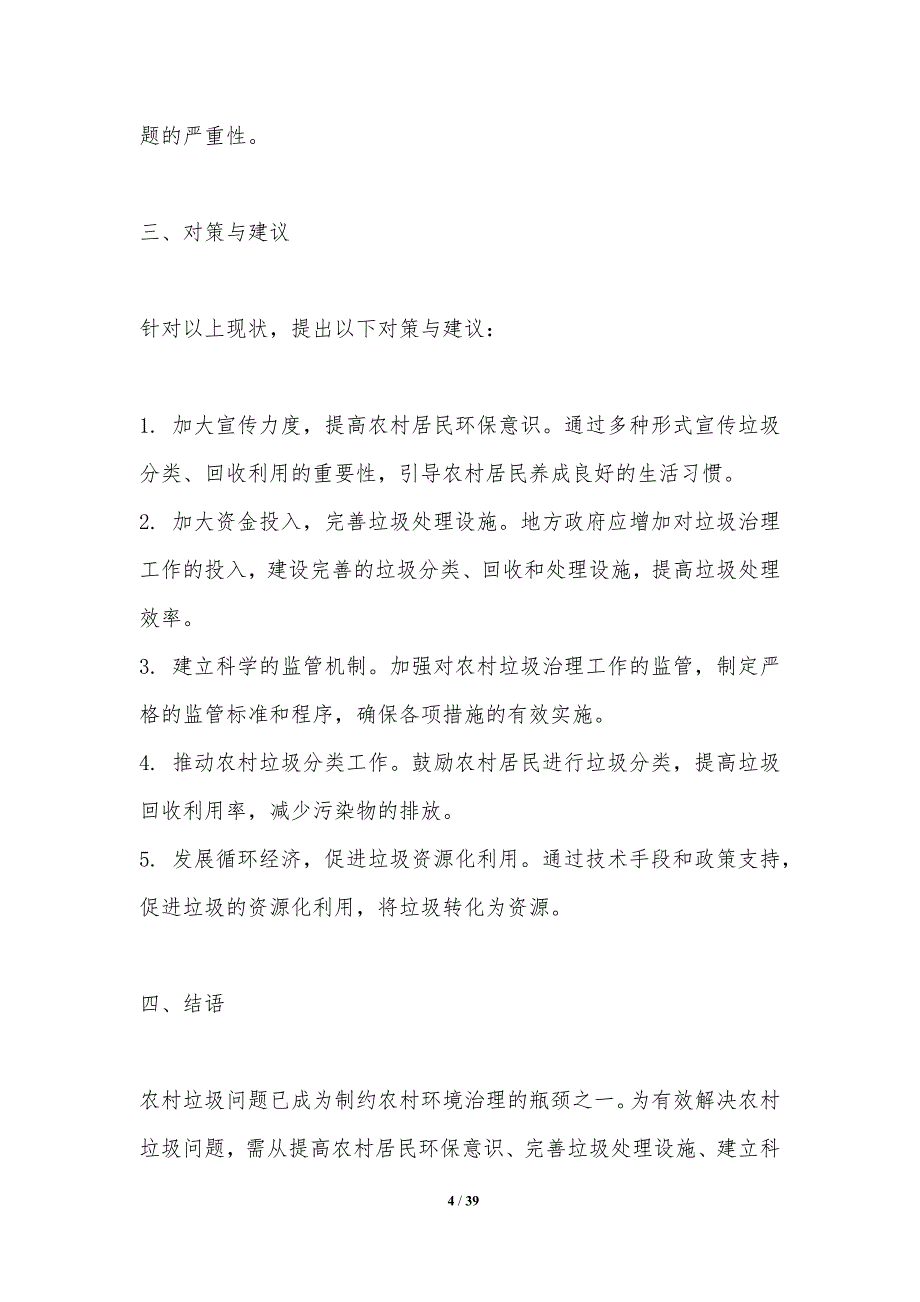 题的严重性。
三、对策与建议
针对以上现状，提出以下对策与建议：
1. 加大宣传力度，提高农村居民环保意识。通过多种形式宣传垃圾
分类、回收利用的重要性，引导农村居民养成良好的生活习惯。
2. 加大资金投入，完善垃圾处理设施。地方政府应增加对垃圾治理
工作的投入，建设完善的垃圾分类、回收和处理设施，提高垃圾处理
效率。
3. 建立科学的监管机制。加强对农村垃圾治理工作的监管，制定严
格的监管标准和程序，确保各项措施的有效实施。
4. 推动农村垃圾分类工作。鼓励农村居民进行垃圾分类，提高垃圾
回收利用率，减少污染物的排放。
5. 发展循环经济，促进垃圾资源化利用。通过技术手段和政策支持，
促进垃圾的资源化利用，将垃圾转化为资源。
四、结语
农村垃圾问题已成为制约农村环境治理的瓶颈之一。为有效解决农村
垃圾问题，需从提高农村居民环保意识、完善垃圾处理设施、建立科
4 / 39